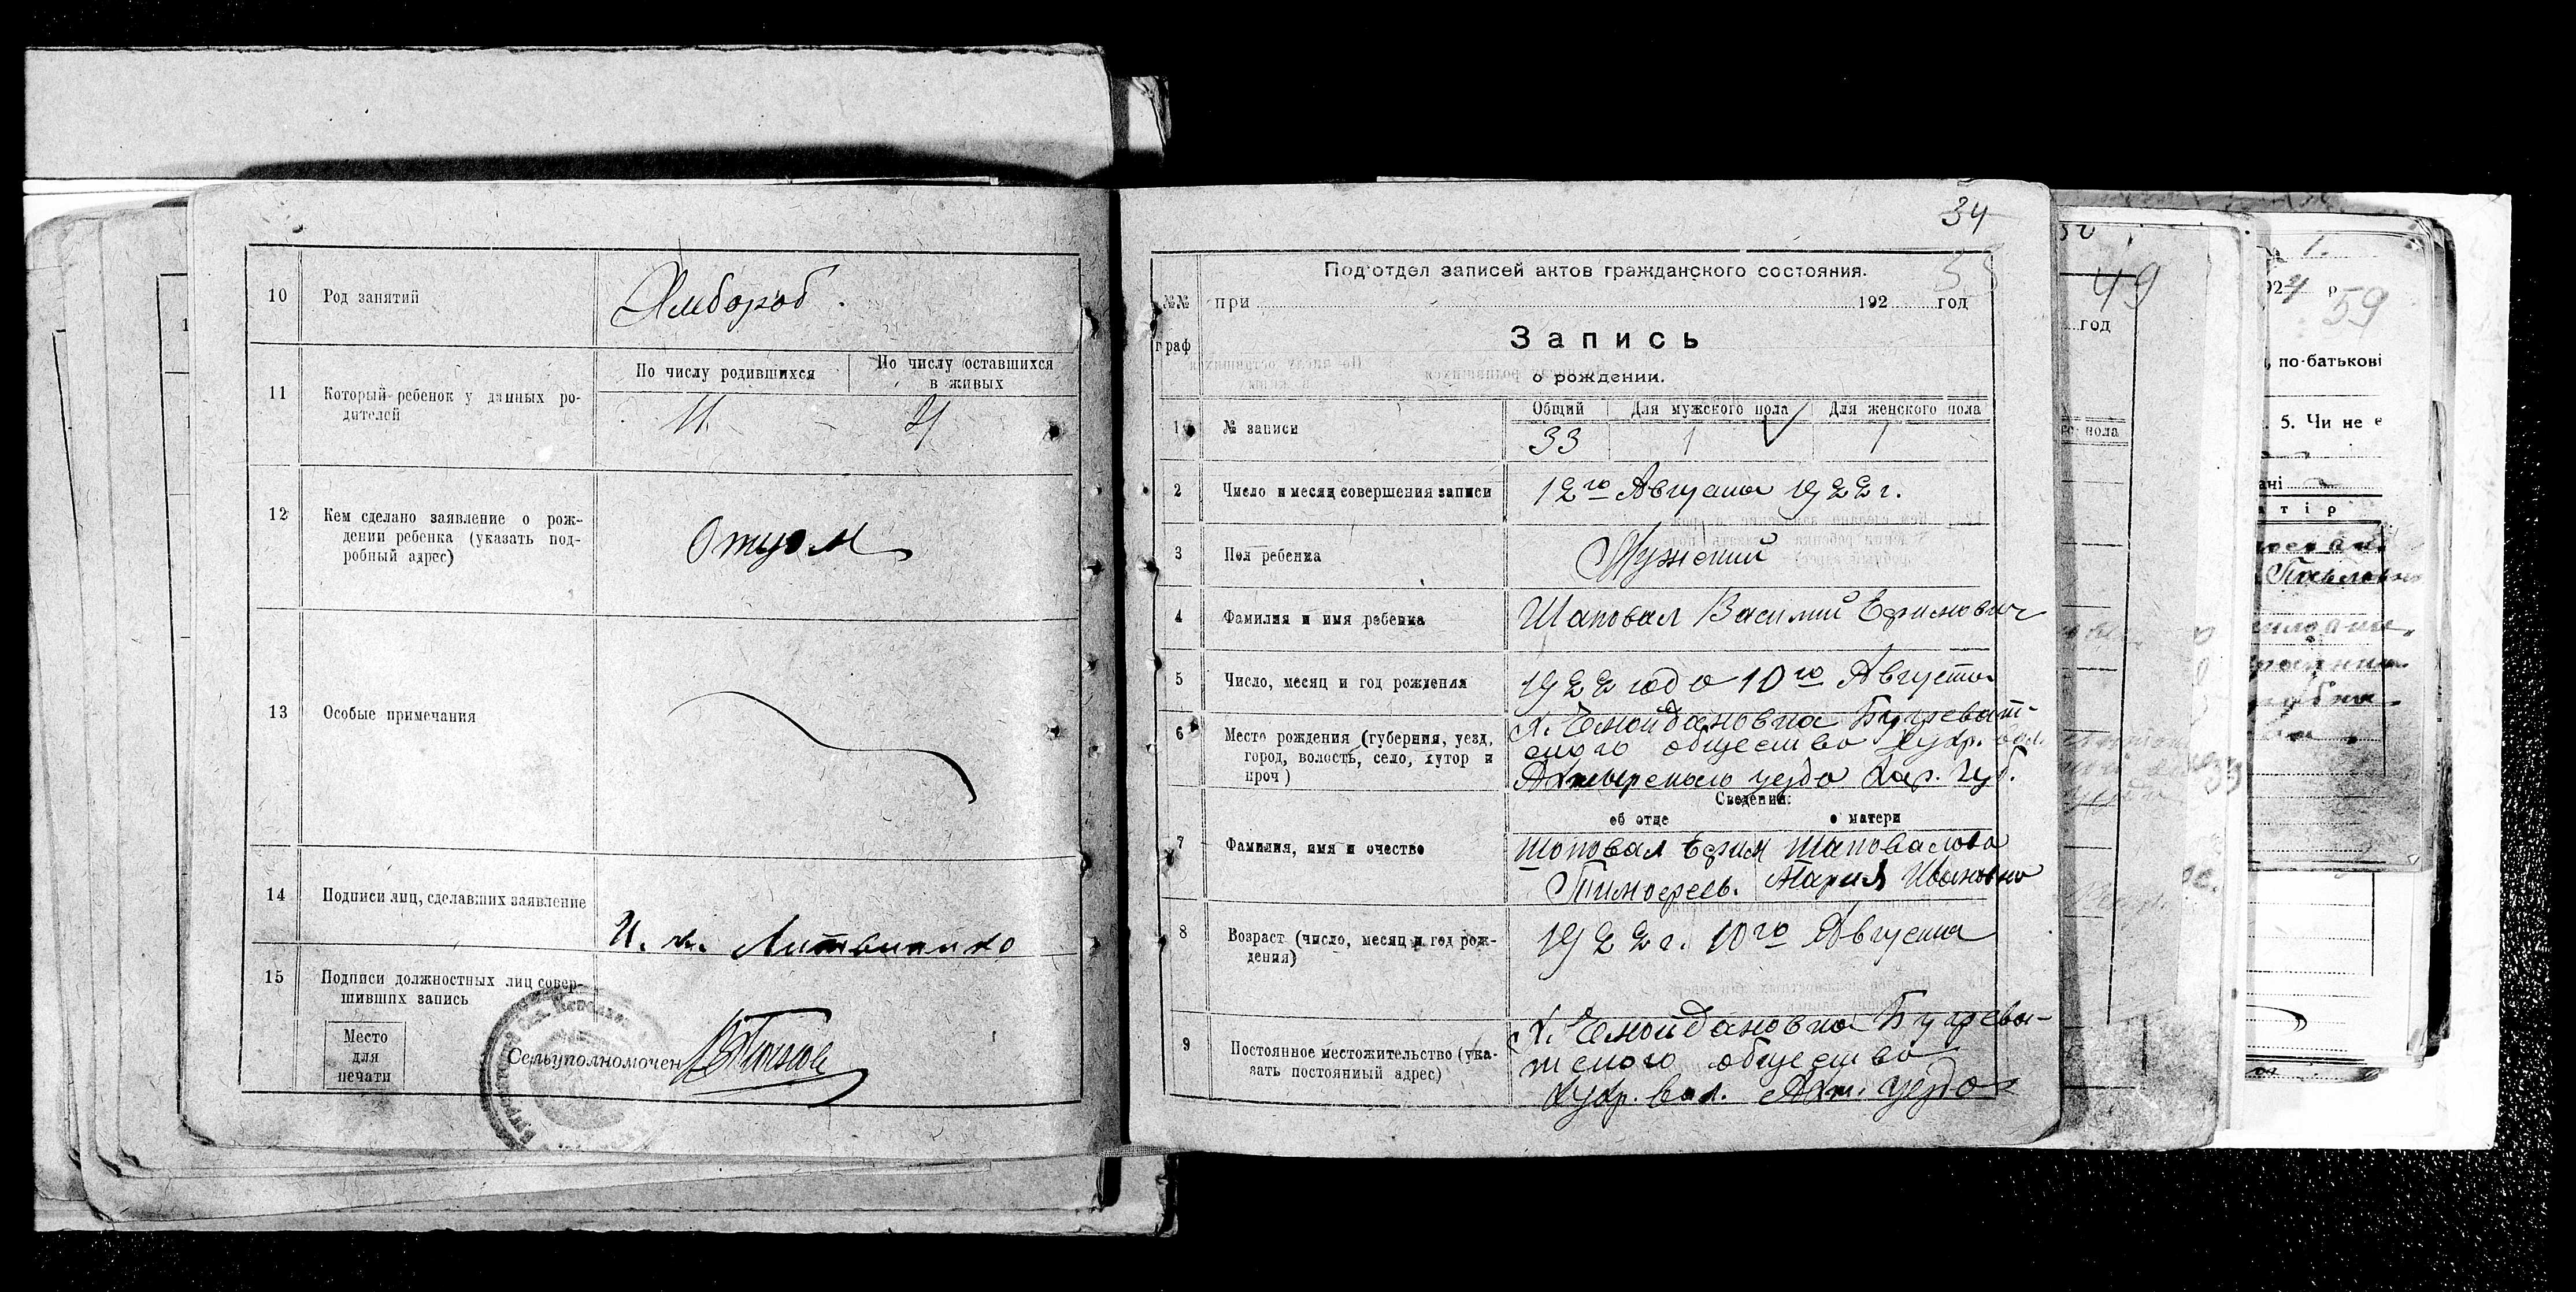 10 Род занятий Хлебороб.
По числу родившихся По числу оставшихся
в живых
11 Который ребенок у данных ро-
дителей
12 Кем сделано заявление о рож-
дении ребенка (указать под-
робный адрес)
Отцом
13 Особые примечания
14 Подписи лиц, сделавших заявление
Литвиненко
15 Подписи должностных лиц совер-
шивших запись
Место
для
печати
Сельуполномочен
34
Под'отдел записей актов гражданского состояния.
№№ при 192 год
граф
Запись
о рождении.
Общий Для мужского пола Для женского пола
1 № записи 33 1 1
2 Число и месяц совершения записи 12го Августа 1922 г.
3 Пол ребенка Мужский
4 Фамилия и имя ребенка Шаповал Василий Ефимович
5 Число, месяц и год рождения 1922 года 10го Августа
6 Место рождения (губерния, уезд,
город, волость, село, хутор и
проч)
Х. Чемойдановка Бугреват-
ского общества Кукр. вол.
Ахтырского уезда Хар. Губ.
Сведения:
об отце о матери
7 Фамилия, имя и очество
Шаповал Ефим Шаповалова
Тимофеев. Мария Ивановна
8 Возраст (число, месяц и год рож-
дения)
1922 г. 10го Августа
9 Постоянное местожительство (ука-
зать постоянный адрес)
Х. Чемойдановка Бугрева-
тского общества
Кукр. вол. Ахт. уезда
49
год
пола
1.
1924 р
59
по-батькові
5. Чи не є
ані
а т і р